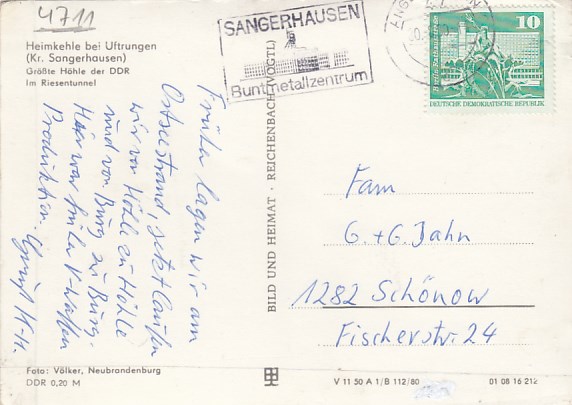 4711
Heimkehle bei Uftrungen
(Kr. Sangerhausen)
Größte Höhle der DDR
Im Riesentunnel
Früher lagen wir am
Ostseestrand, jetzt laufen
wir von Höhle zu Höhle
und von Burg zu Burg.
Hier war früher V-Waffen
Produktion. Gruß K-H.
Foto: Völker, Neubrandenburg
DDR 0,20 M
BILD UND HEIMAT · REICHENBACH (VOGTL)
SANGERHAUSEN
Buntmetallzentrum
10
DEUTSCHE DEMOKRATISCHE REPUBLIK
Fam
G.+G. Jahn
1282 Schönow
Fischerstr. 24
V 11 50 A 1/B 112/80
01 08 16 212